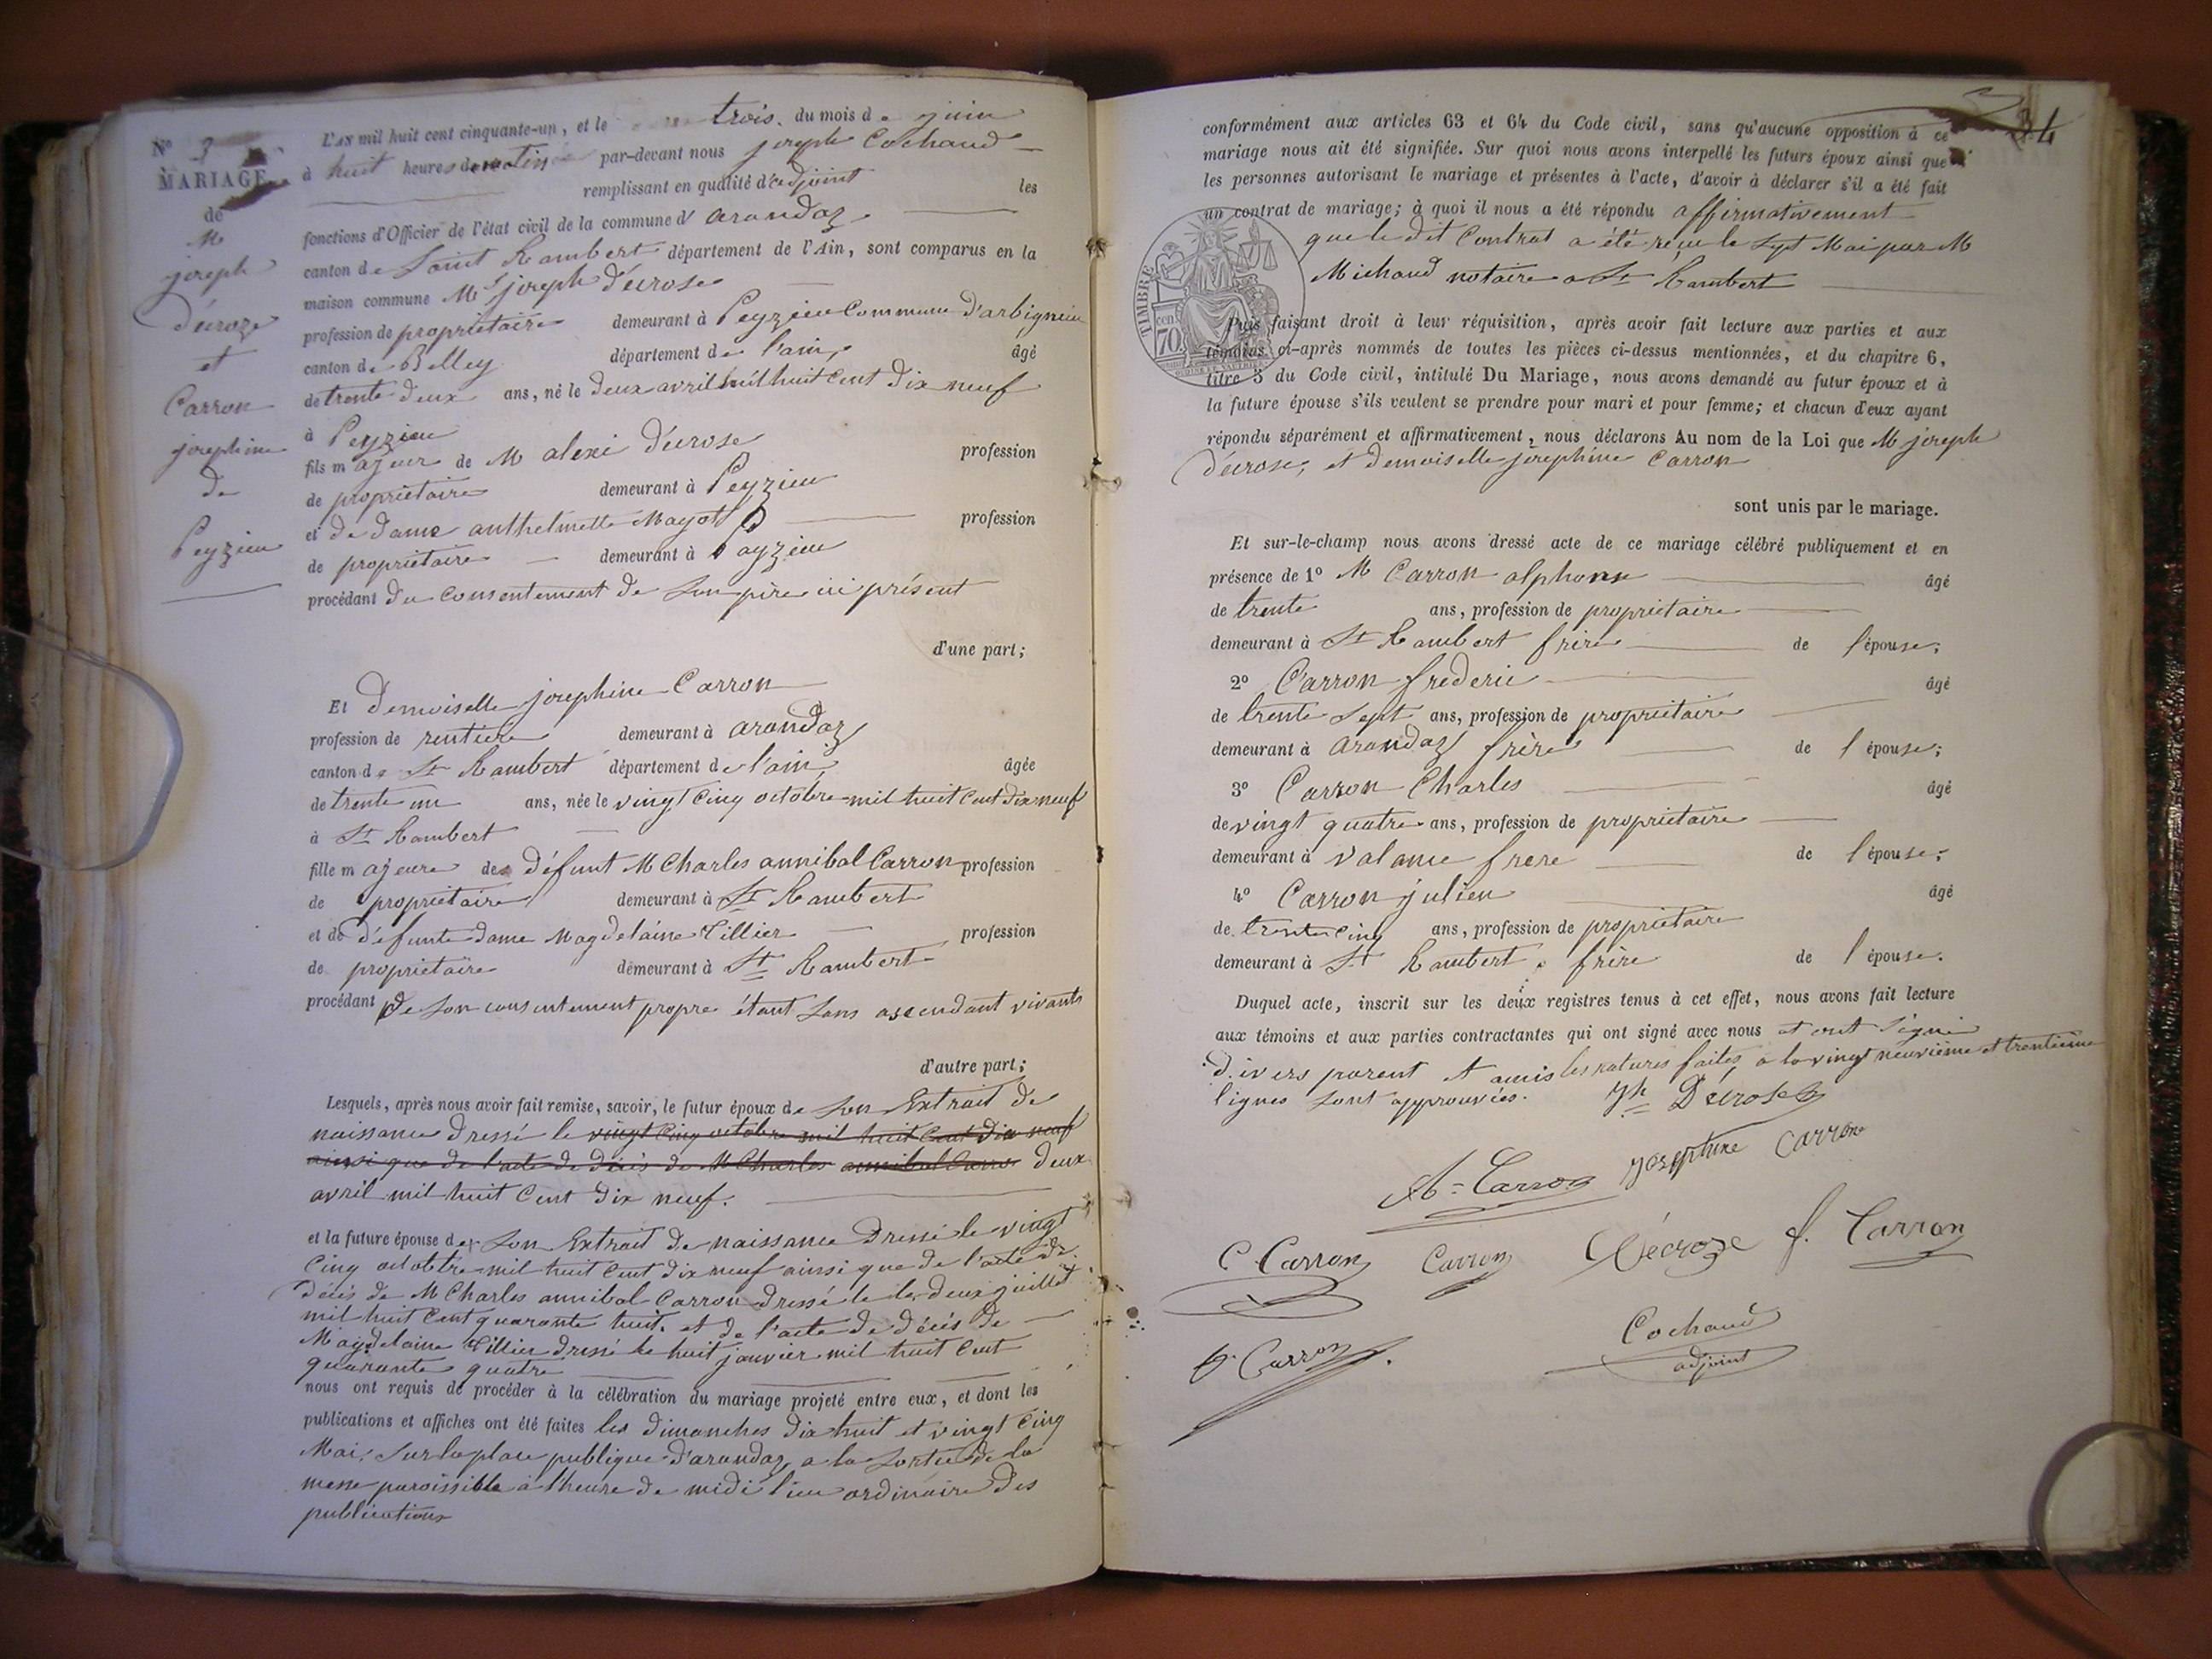 N° 3
MARIAGE
de
M
joseph
Décroze
et
Carron
josephine
de
Peyzieu
L'AN mil huit cent cinquante-un, et le trois du mois de juin
à huit heures du matin par-devant nous joseph Cochaud
remplissant en qualité d'adjoint les
fonctions d'Officier de l'état civil de la commune d'arandaz
canton de Saint Rambert département de l'Ain, sont comparus en la
maison commune Mr joseph Décrose
profession de propriétaire demeurant à Peyzieu Commune d'arbignieu
canton de Belley département de l'ain, âgé
de trente deux ans, né le deux avril mil huit Cent dix neuf
à Peyzieu
fils majeur de M alexi Décrose profession
de propriétaire demeurant à Peyzieu
et de dame anthelmette Mayot profession
de propriétaire demeurant à Payzieu
procédant du Consentement de Son père ici présent
d'une part;
Et Demoiselle josephine Carron
profession de rentière demeurant à arandaz
canton de St Rambert département de l'ain âgée
de trente un ans, née le vingt Cinq octobre mil huit Cent dix neuf
à St Rambert
fille majeure de défunt M Charles annibal Carron profession
de propriétaire demeurant à St Rambert
et de défunte dame Magdelaine Tillier profession
de propriétaire demeurant à St Rambert
procédant de Son consentement propre étant Sans ascendant vivants
d'autre part;
Lesquels, après nous avoir fait remise, savoir, le futur époux de Son Extrait de
naissance Dressé le vingt Cinq octobre mil huit Cent dix neuf
ainsi que de l'acte de décès de M Charles annibal Carron deux
avril mil huit Cent dix neuf.
et la future épouse de Son Extrait de naissance Dressé le vingt
Cinq octobre mil huit Cent dix neuf ainsi que de l'acte de
décès de M Charles annibal Carron dressé le le deux juillet
mil huit Cent quarante huit. et de l'acte de décès de
Magdelaine Tillier dressé le huit janvier mil huit Cent
quarante quatre
nous ont requis de procéder à la célébration du mariage projeté entre eux, et dont les
publications et affiches ont été faites les dimanches dix huit et vingt Cinq
Mai, Sur la place publique d'arandaz, a la Sortie de la
messe paroissible à l'heure de midi lieu ordinaire des
publications
34
conformément aux articles 63 et 64 du Code civil, sans qu'aucune opposition à ce
mariage nous ait été signifiée. Sur quoi nous avons interpellé les futurs époux ainsi que
les personnes autorisant le mariage et présentes à l'acte, d'avoir à déclarer s'il a été fait
un contrat de mariage; à quoi il nous a été répondu affirmativement
que le dit Contrat a été reçu le Sept Mai par M
Michaud notaire a St Rambert
TIMBRE
70
Puis faisant droit à leur réquisition, après avoir fait lecture aux parties et aux
témoins ci-après nommés de toutes les pièces ci-dessus mentionnées, et du chapitre 6,
titre 5 du Code civil, intitulé Du Mariage, nous avons demandé au futur époux et à
la future épouse s'ils veulent se prendre pour mari et pour femme; et chacun d'eux ayant
répondu séparément et affirmativement, nous déclarons Au nom de la Loi que M joseph
Décrose, et demoiselle josephine Carron
sont unis par le mariage.
Et sur-le-champ nous avons dressé acte de ce mariage célébré publiquement et en
présence de 1° M Carron alphonse âgé
de trente ans, profession de propriétaire
demeurant à St Rambert frère de l'épouse;
2° Carron frederic âgé
de trente Sept ans, profession de propriétaire
demeurant à arandaz frère de l'épouse;
3° Carron Charles âgé
de vingt quatre ans, profession de propriétaire
demeurant à Valance frere de l'épouse;
4° Carron julien âgé
de trente Cinq ans, profession de propriétaire
demeurant à St Rambert, frère de l'épouse.
Duquel acte, inscrit sur les deux registres tenus à cet effet, nous avons fait lecture
aux témoins et aux parties contractantes qui ont signé avec nous et ont signé
divers parent et amis les ratures faites a la vingt neuvième et trentieme
lignes Sont approuvées. Jh Décrose
A=Carron Josephine Carron
C Carron Carron Décroze f. Carron
Cochaud
adjoint
Carron